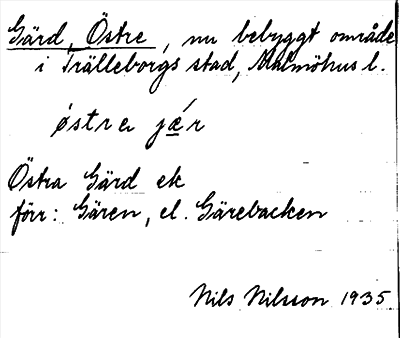 Gärd, Östre, nu bebyggt område
i Trälleborgs stad, Malmöhus l.
østrɘ jǽr
Östra Gärd ek
förr: Gären, el. Gärebacken
Nils Nilsson 1935